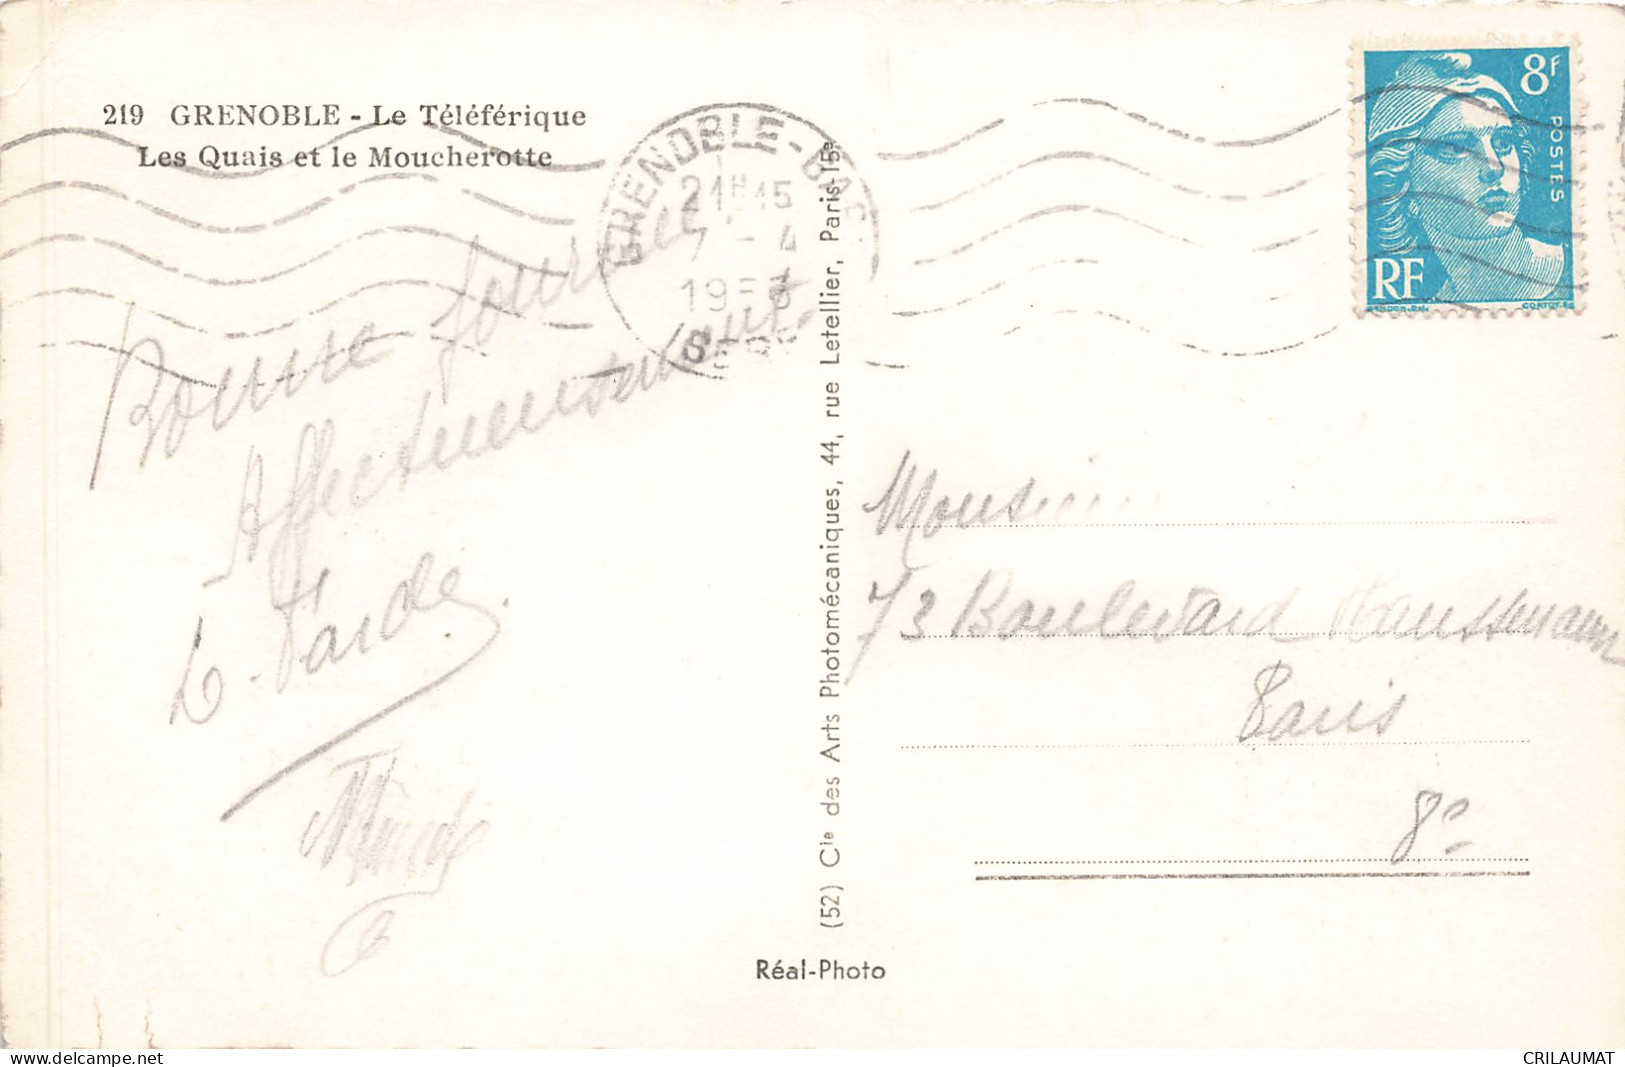 219 GRENOBLE - Le Téléférique
Les Quais et le Moucherotte
GRENOBLE-GARE
21H45
7 - 4
8F
POSTES
RF
Bonne journée
Affectueusement
Monsieur
73 Boulevard Haussmann
Paris
8e
(52) Cie des Arts Photomécaniques, 44, rue Letellier, Paris-15e
Réal-Photo
delcampe.net
CRILAUMAT